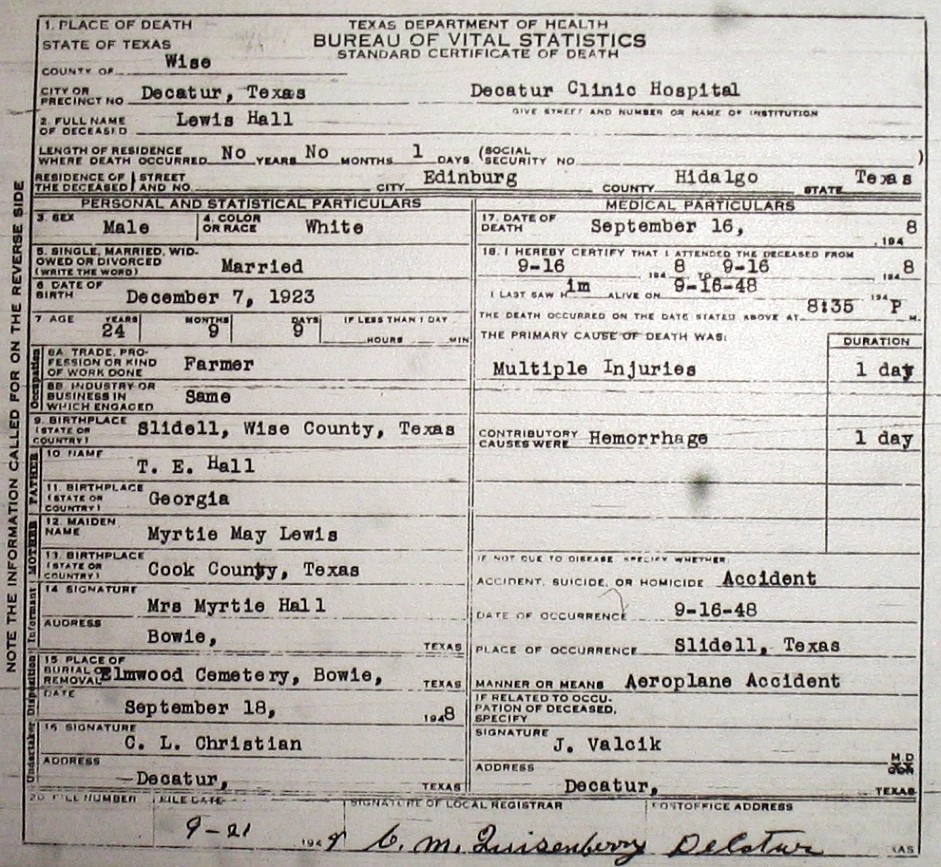 1. PLACE OF DEATH
TEXAS DEPARTMENT OF HEALTH
STATE OF TEXAS
BUREAU OF VITAL STATISTICS
STANDARD CERTIFICATE OF DEATH
COUNTY OF Wise
CITY OR PRECINCT NO. Decatur, Texas Decatur Clinic Hospital
GIVE STREET AND NUMBER OR NAME OF INSTITUTION
2. FULL NAME OF DECEASED Lewis Hall
LENGTH OF RESIDENCE WHERE DEATH OCCURRED No YEARS No MONTHS 1 DAYS (SOCIAL SECURITY NO. )
RESIDENCE OF THE DECEASED STREET AND NO. CITY Edinburg COUNTY Hidalgo STATE Texas
NOTE THE INFORMATION CALLED FOR ON THE REVERSE SIDE
PERSONAL AND STATISTICAL PARTICULARS
3. SEX Male 4. COLOR OR RACE White
5. SINGLE, MARRIED, WIDOWED OR DIVORCED (WRITE THE WORD) Married
6. DATE OF BIRTH December 7, 1923
7 AGE YEARS 24 MONTHS 9 DAYS 9 IF LESS THAN 1 DAY HOURS MIN
Occupation
8A. TRADE, PROFESSION OR KIND OF WORK DONE Farmer
8B. INDUSTRY OR BUSINESS IN WHICH ENGAGED Same
9. BIRTHPLACE (STATE OR COUNTRY) Slidell, Wise County, Texas
FATHER
10 NAME T. E. Hall
11. BIRTHPLACE (STATE OR COUNTRY) Georgia
MOTHER
12. MAIDEN NAME Myrtie May Lewis
13. BIRTHPLACE (STATE OR COUNTRY) Cook County, Texas
Informant
14 SIGNATURE Mrs Myrtie Hall
ADDRESS Bowie, TEXAS
Disposition
15 PLACE OF BURIAL OR REMOVAL Elmwood Cemetery, Bowie, TEXAS
DATE September 18, 1948
Undertaker
16 SIGNATURE C. L. Christian
ADDRESS Decatur, TEXAS
MEDICAL PARTICULARS
17. DATE OF DEATH September 16, 194 8
18. I HEREBY CERTIFY THAT I ATTENDED THE DECEASED FROM
9-16 194 8 TO 9-16 194 8
I LAST SAW H im ALIVE ON 9-16-48 194
THE DEATH OCCURRED ON THE DATE STATED ABOVE AT 8:35 P M.
THE PRIMARY CAUSE OF DEATH WAS: DURATION
Multiple Injuries 1 day
CONTRIBUTORY CAUSES WERE Hemorrhage 1 day
IF NOT DUE TO DISEASE SPECIFY WHETHER:
ACCIDENT, SUICIDE, OR HOMICIDE Accident
DATE OF OCCURRENCE 9-16-48
PLACE OF OCCURRENCE Slidell, Texas
MANNER OR MEANS Aeroplane Accident
IF RELATED TO OCCUPATION OF DECEASED, SPECIFY
SIGNATURE J. Valcik M.D
ADDRESS Decatur, TEXAS
20. FILE NUMBER FILE DATE SIGNATURE OF LOCAL REGISTRAR POSTOFFICE ADDRESS
9-21 1948 C. M. Quisenberry Decatur